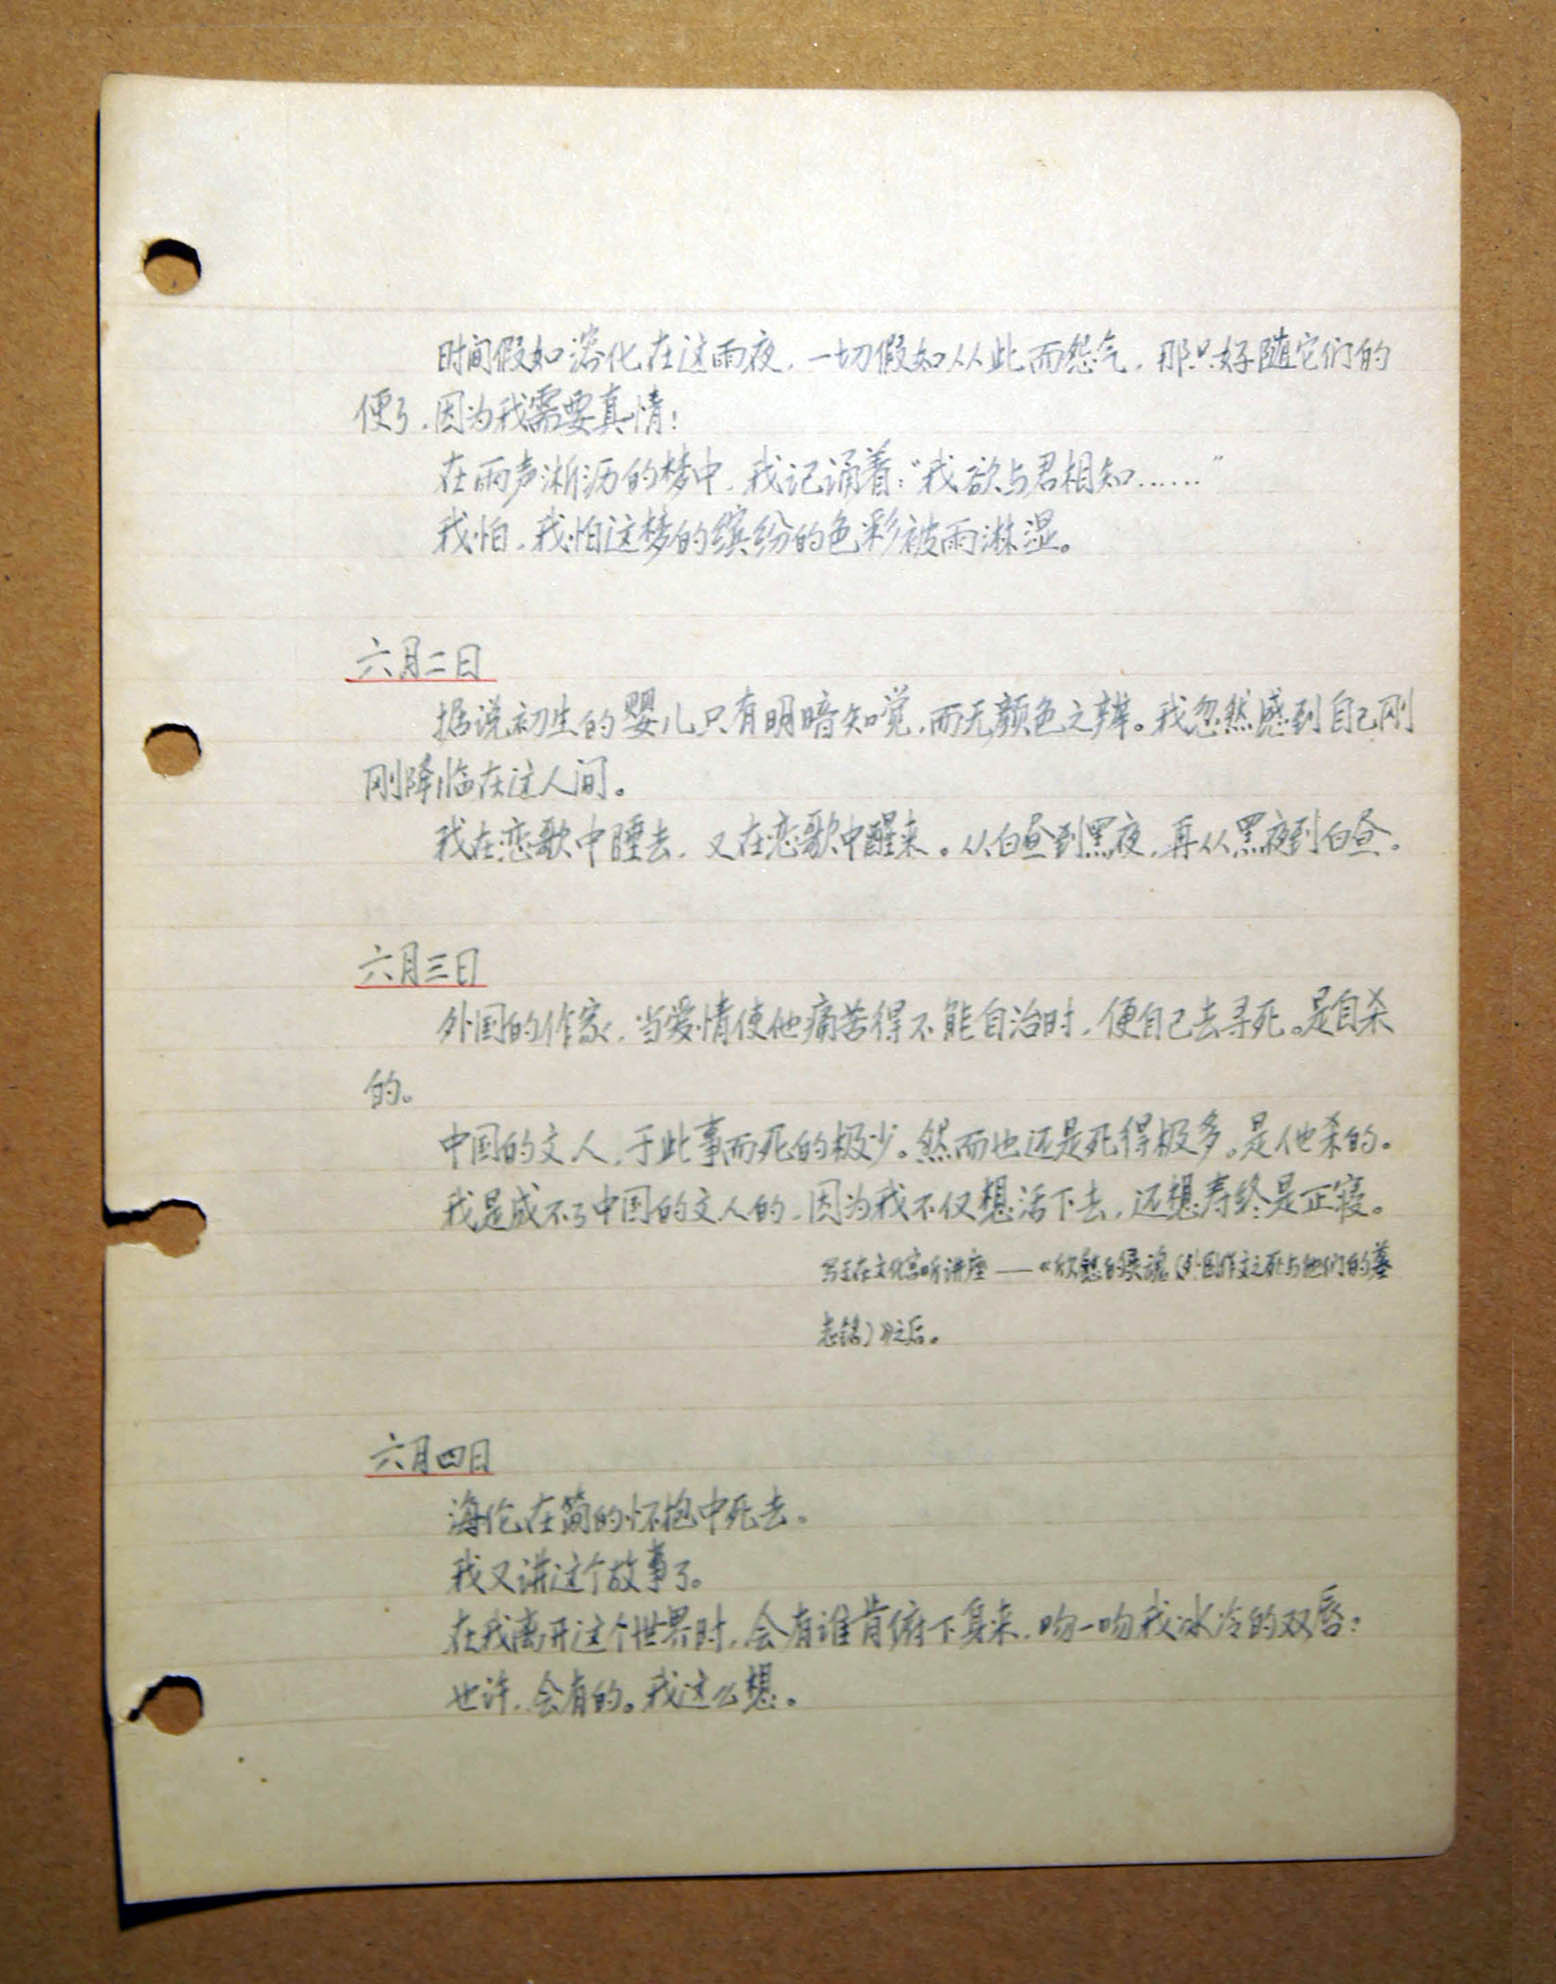 时间假如溶化在这雨夜，一切假如从此而怨气，那只好随它们的
便了，因为我需要真情！
在雨声淅沥的梦中，我记诵着：“我欲与君相知……”
我怕，我怕这梦的缤纷的色彩被雨淋湿。
六月二日
据说初生的婴儿只有明暗知觉，而无颜色之辨。我忽然感到自己刚
刚降临在这人间。
我在恋歌中睡去，又在恋歌中醒来。从白昼到黑夜，再从黑夜到白昼。
六月三日
外国的作家，当爱情使他痛苦得不能自治时，便自己去寻死。是自杀
的。
中国的文人，于此事而死的极少。然而也还是死得极多。是他杀的。
我是成不了中国的文人的，因为我不仅想活下去，还想寿终是正寝。
写于在文化宫听讲座——《的灵魂（外国作家之死与他们的墓
志铭）》之后。
六月四日
海伦在简的怀抱中死去。
我又讲这个故事了。
在我离开这个世界时，会有谁肯俯下身来，吻一吻我冰冷的双唇？
也许，会有的。我这么想。